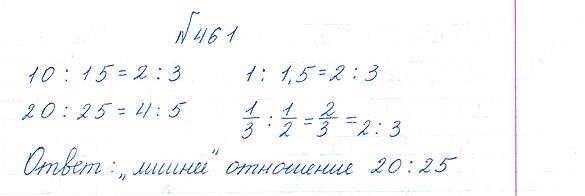 №461
10 : 15 = 2 : 3    1 : 1,5 = 2 : 3
20 : 25 = 4 : 5    1/3 : 1/2 = 2/3 = 2 : 3
Ответ: „лишнее" отношение 20 : 25